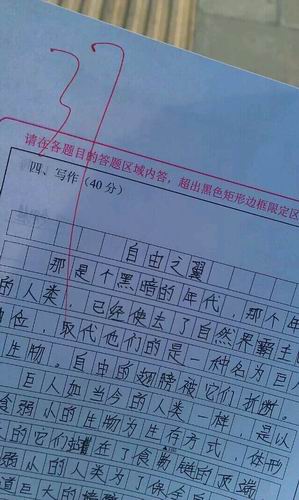 37
请在各题目的答题区域内答，超出黑色矩形边框限定区
四、写作（40分）
自由之翼
那是个黑暗的年代，那个年
的人类，已经失去了自然界霸主
地位，取代他们的是一种名为巨人
生物。自由的翅膀被它们折断。
巨人如当今的人类一样，是以
食弱小的生物为生存方式，体形
大的它们站在了食物链的顶端
弱小的人类为了保
造巨大的墙